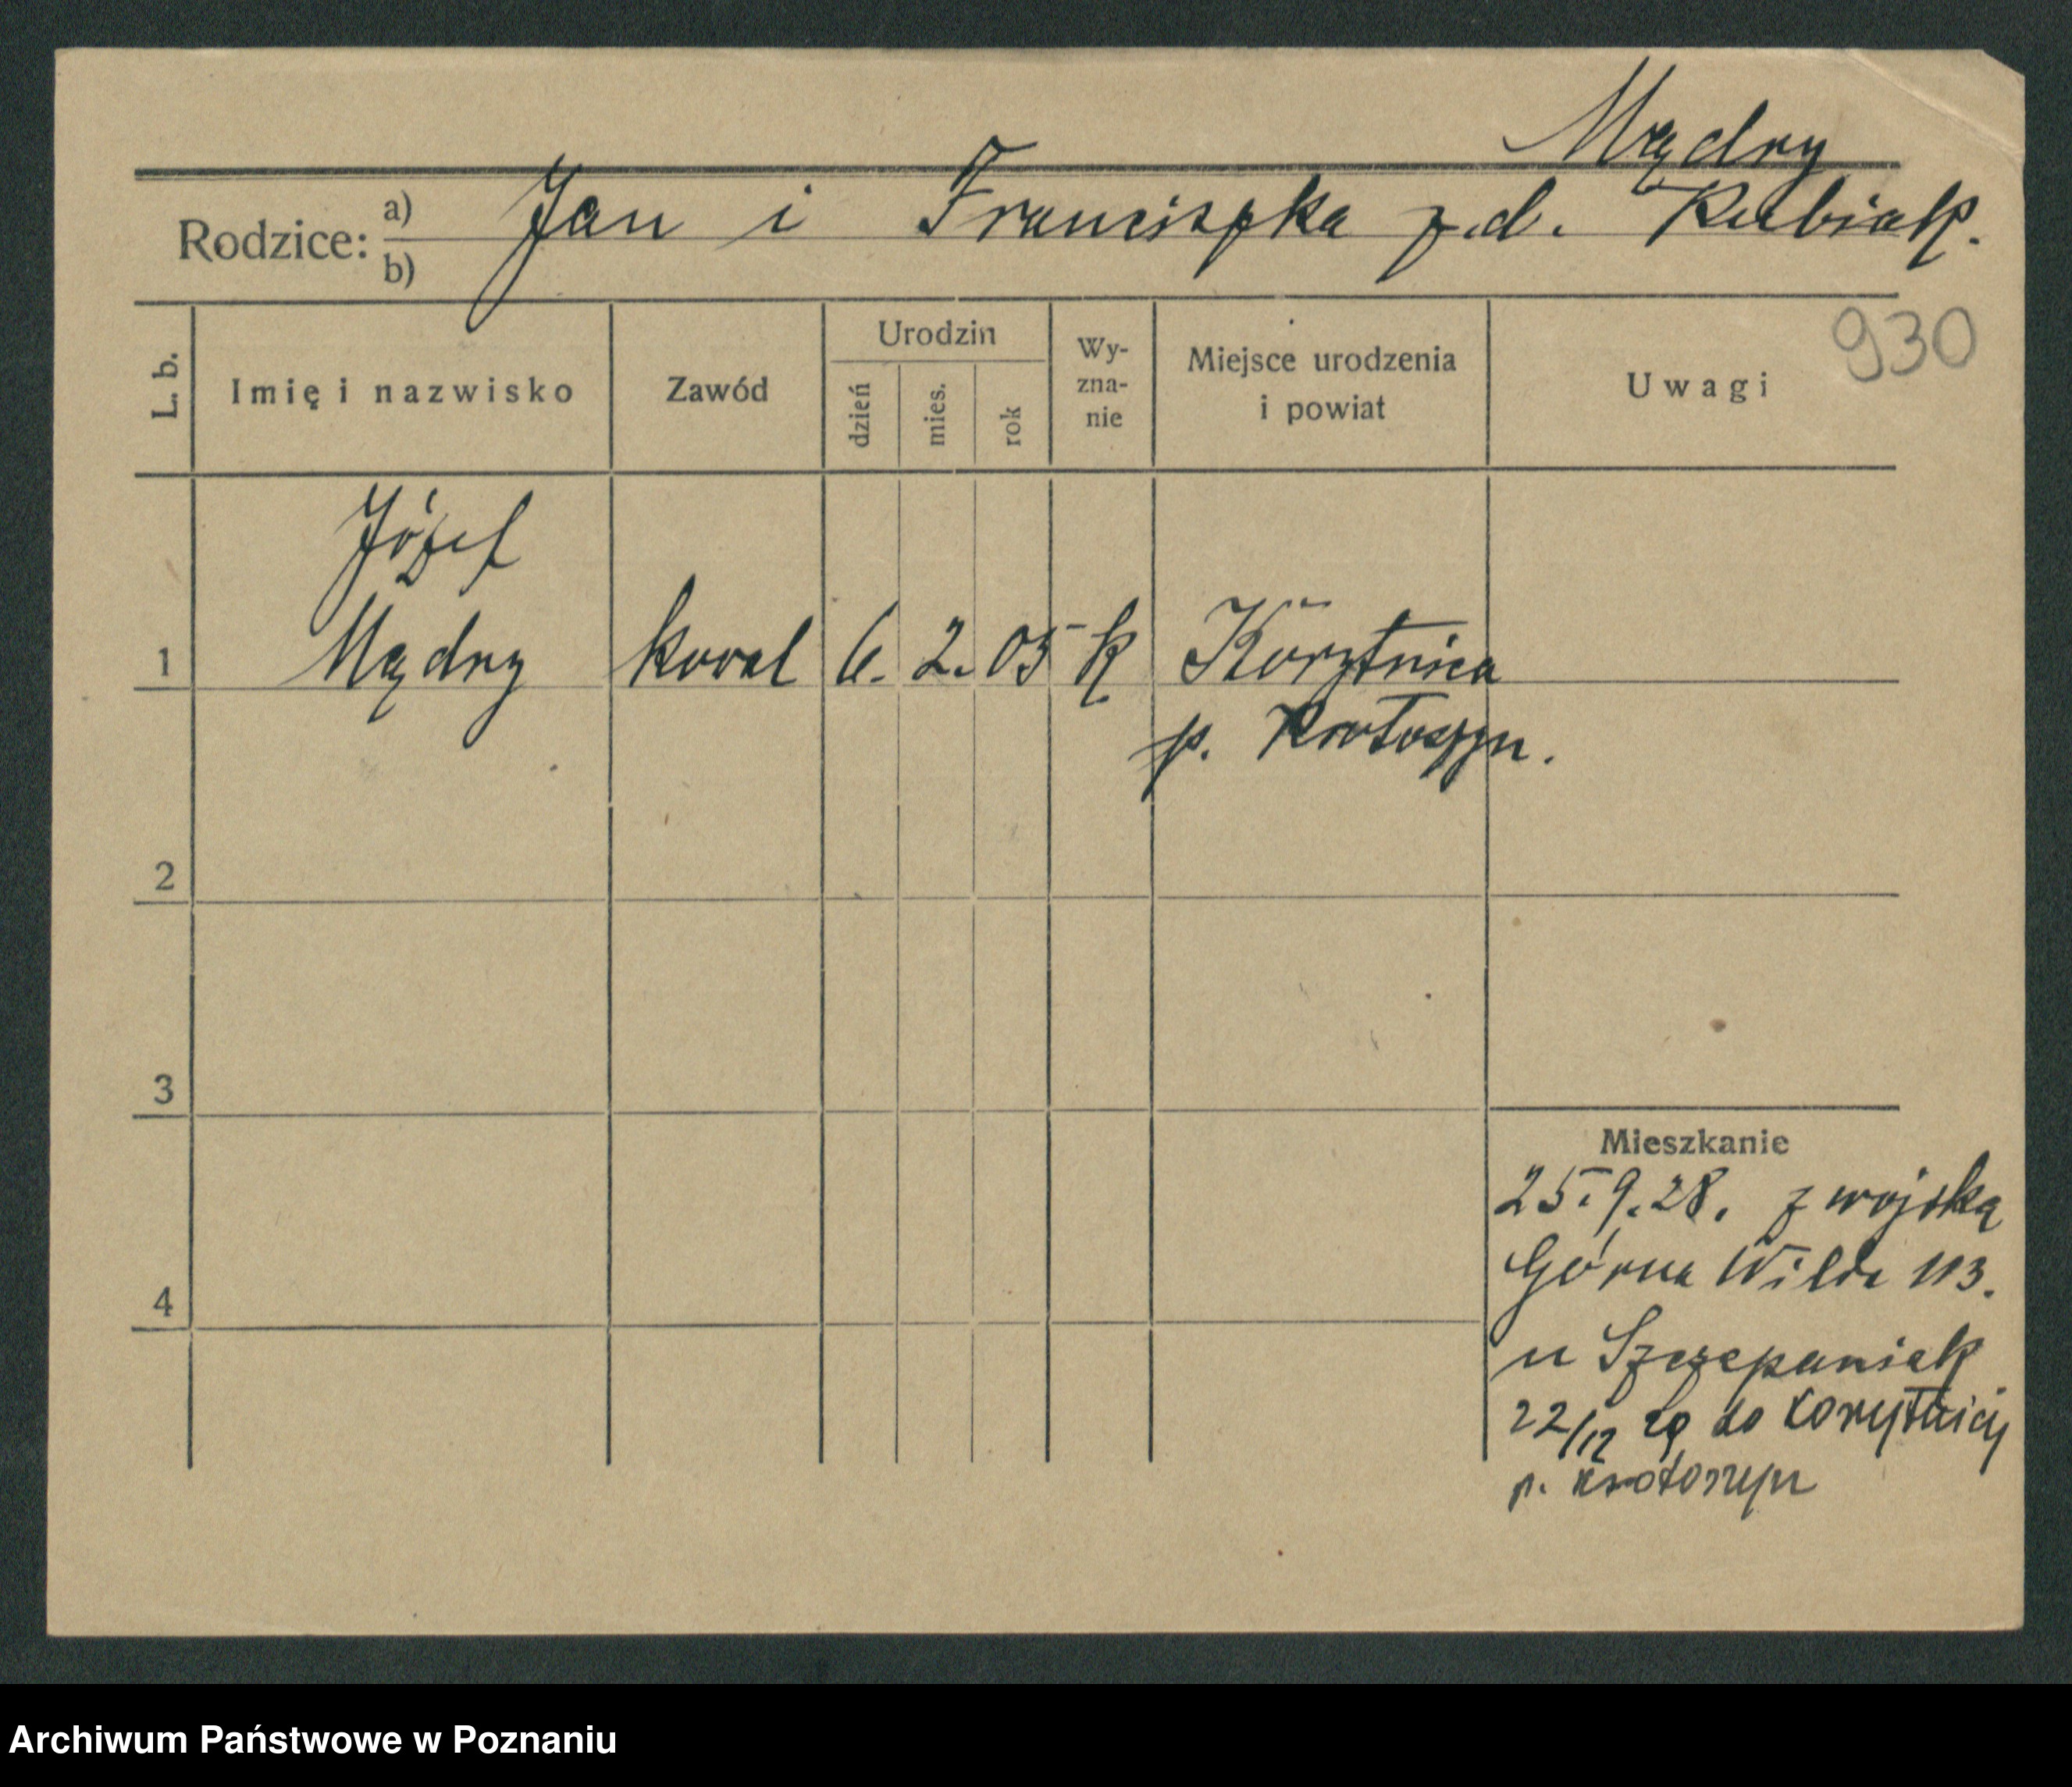 Mądry
Rodzice: a) Jan i Franciszka z.d. Kubiak.
b)
930
L. b. Imię i nazwisko Zawód Urodzin dzień mies. rok Wy-zna-nie Miejsce urodzenia i powiat Uwagi
Józef
1 Mądry kowal 6. 2. 05 k Korytnica
p. Krotoszyn.
2
3
Mieszkanie
25.9.28. z wojska
Górna Wilda 113.
4
u Szczepaniak
22/12 29 do Korytnicy
p. Krotoszyn
Archiwum Państwowe w Poznaniu